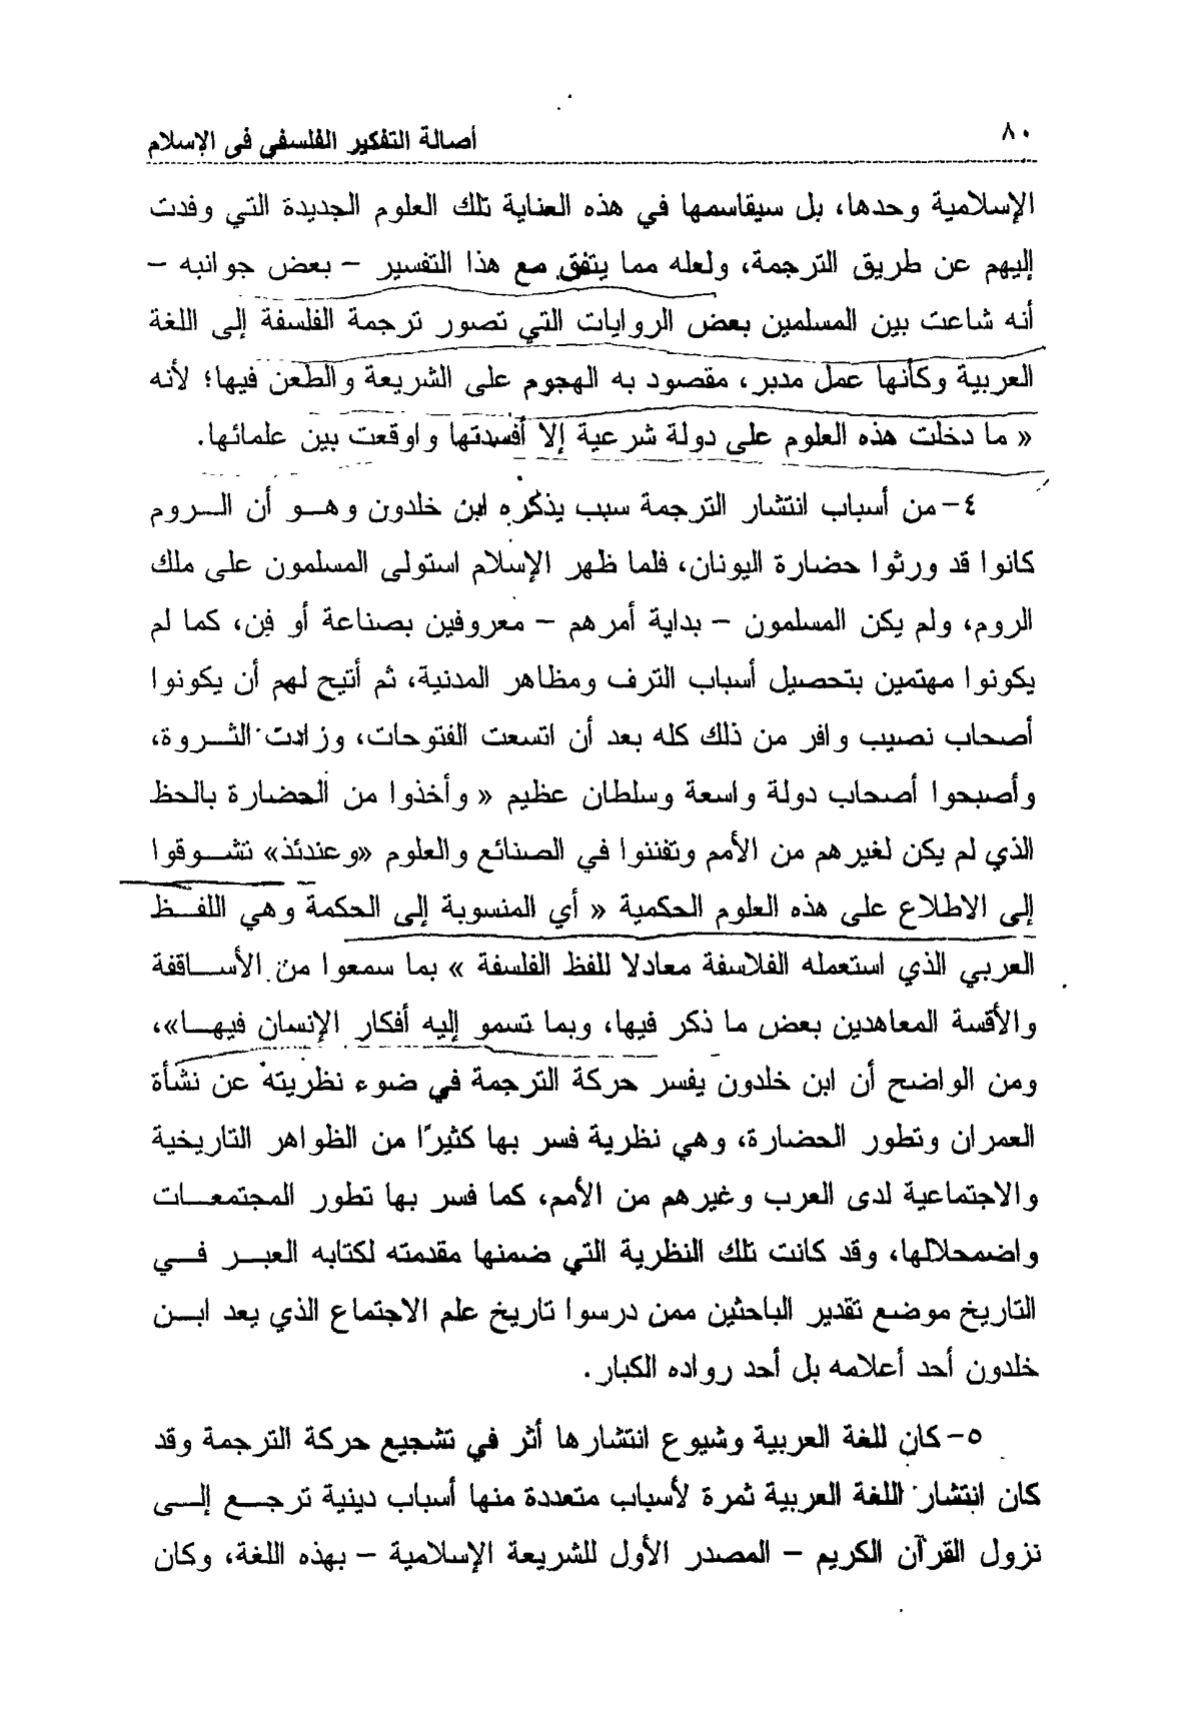 ٨٠
أصالة التفكير الفلسفي فى الإسلام
الإسلامية وحدها، بل سيقاسمها في هذه العناية تلك العلوم الجديدة التي وفدت
إليهم عن طريق الترجمة، ولعله مما يتفق مع هذا التفسير – بعض جوانبه –
أنه شاعت بين المسلمين بعض الروايات التي تصور ترجمة الفلسفة إلى اللغة
العربية وكأنها عمل مدبر، مقصود به الهجوم على الشريعة والطعن فيها؛ لأنه
« ما دخلت هذه العلوم على دولة شرعية إلا أفسدتها واوقعت بين علمائها.
٤- من أسباب انتشار الترجمة سبب يذكره ابن خلدون وهو أن الروم
كانوا قد ورثوا حضارة اليونان، فلما ظهر الإسلام استولى المسلمون على ملك
الروم، ولم يكن المسلمون – بداية أمرهم – معروفين بصناعة أو فن، كما لم
يكونوا مهتمين بتحصيل أسباب الترف ومظاهر المدنية، ثم أتيح لهم أن يكونوا
أصحاب نصيب وافر من ذلك كله بعد أن اتسعت الفتوحات، وزادت الثروة،
وأصبحوا أصحاب دولة واسعة وسلطان عظيم « وأخذوا من الحضارة بالحظ
الذي لم يكن لغيرهم من الأمم وتفننوا في الصنائع والعلوم «وعندئذ» تشوقوا
إلى الاطلاع على هذه العلوم الحكمية « أي المنسوبة إلى الحكمة وهي اللفظ
العربي الذي استعمله الفلاسفة معادلا للفظ الفلسفة » بما سمعوا من الأساقفة
والأقسة المعاهدين بعض ما ذكر فيها، وبما تسمو إليه أفكار الإنسان فيها»،
ومن الواضح أن ابن خلدون يفسر حركة الترجمة في ضوء نظريته عن نشأة
العمران وتطور الحضارة، وهي نظرية فسر بها كثيرًا من الظواهر التاريخية
والاجتماعية لدى العرب وغيرهم من الأمم، كما فسر بها تطور المجتمعات
واضمحلالها، وقد كانت تلك النظرية التي ضمنها مقدمته لكتابه العبر في
التاريخ موضع تقدير الباحثين ممن درسوا تاريخ علم الاجتماع الذي يعد ابن
خلدون أحد أعلامه بل أحد رواده الكبار.
٥- كان للغة العربية وشيوع انتشارها أثر في تشجيع حركة الترجمة وقد
كان انتشار اللغة العربية ثمرة لأسباب متعددة منها أسباب دينية ترجع إلى
نزول القرآن الكريم – المصدر الأول للشريعة الإسلامية – بهذه اللغة، وكان